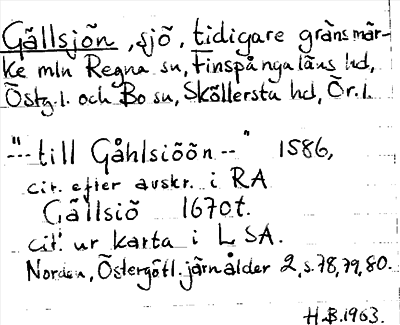 Gällsjön, sjö, tidigare gränsmär-
ke mln Regna sn, Finspånga läns hd,
Östg.l. och Bo sn, Sköllersta hd, Ör.l.
"-- till Gåhlsiöön --" 1586,
cit. efter avskr. i RA
Gällsiö 1670t.
cit. ur karta i LSA.
Nordén, Östergötl. järnålder 2, s. 78, 79, 80.
H.B. 1963.